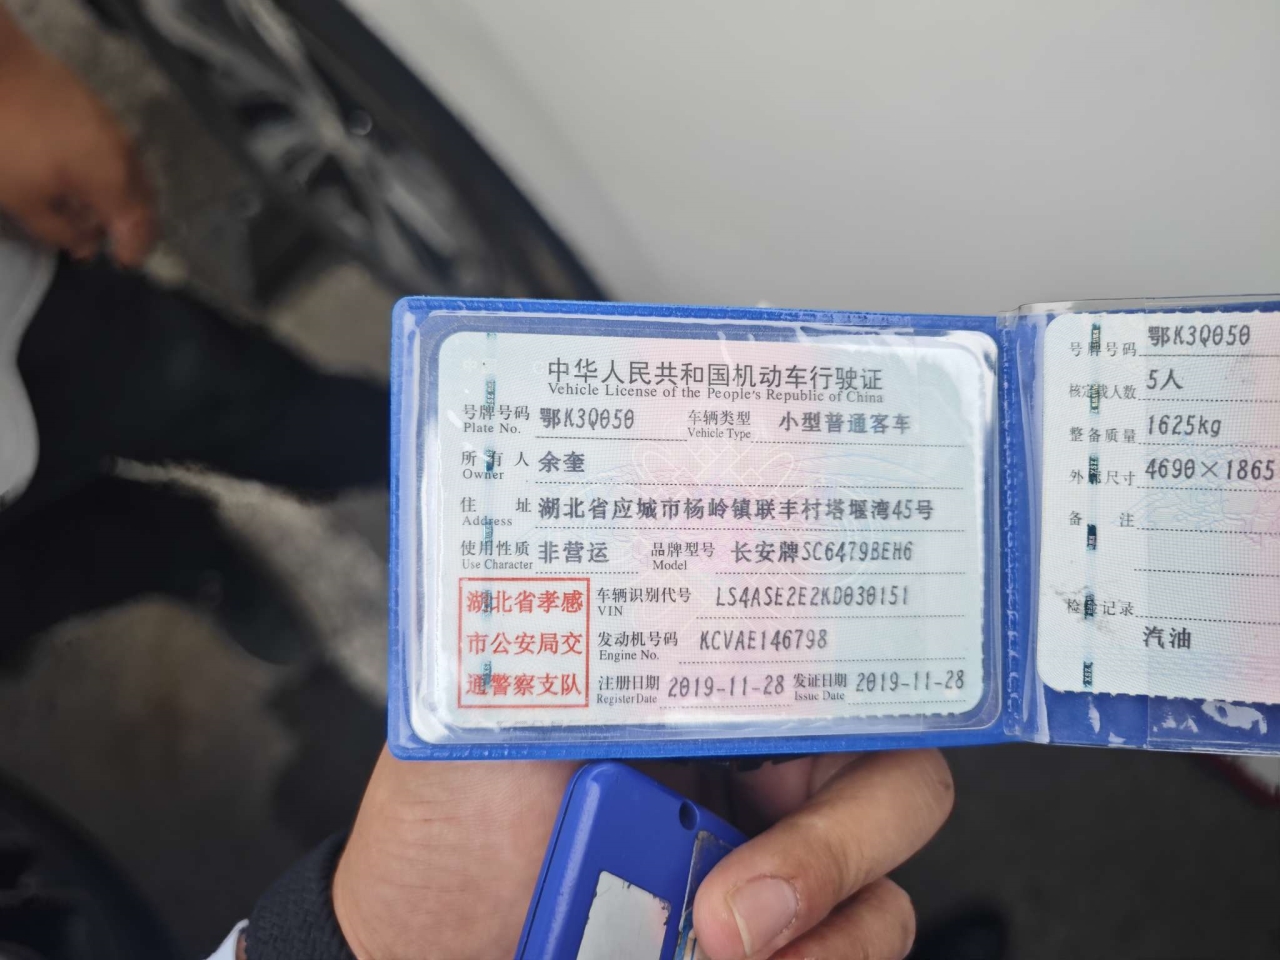 中华人民共和国机动车行驶证
Vehicle License of the People's Republic of China
号牌号码 鄂K3Q050 车辆类型 小型普通客车
Plate No. Vehicle Type
所有人 余奎
Owner
住址 湖北省应城市杨岭镇联丰村塔堰湾45号
Address
使用性质 非营运 品牌型号 长安牌SC6479BEH6
Use Character Model
湖北省孝感
市公安局交
通警察支队
车辆识别代号 LS4ASE2E2KD030151
VIN
发动机号码 KCVAE146798
Engine No.
注册日期 2019-11-28 发证日期 2019-11-28
Register Date Issue Date
号牌号码 鄂K3Q050
核定载人数 5人
整备质量 1625kg
外廓尺寸 4690×1865
备注
检验记录
汽油